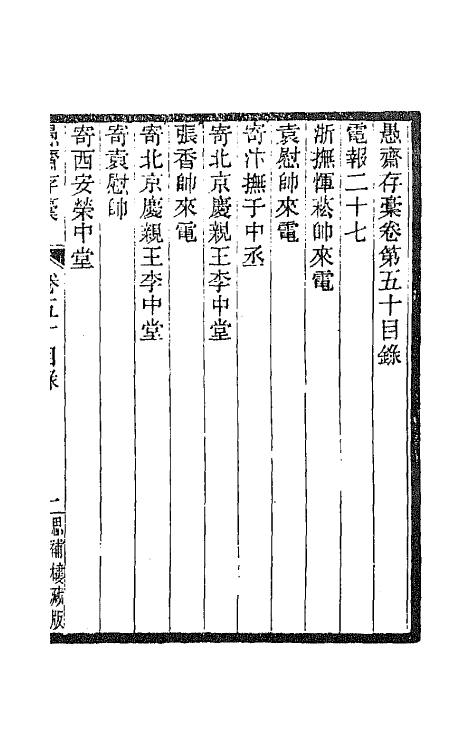 愚齋存稾卷第五十目錄
電報二十七
浙撫惲菘帥來電
袁慰帥來電
寄汴撫于中丞
寄北京慶親王李中堂
張香帥來電
寄北京慶親王李中堂
寄袁慰帥
寄西安榮中堂
愚齋存稾 卷五十目錄 一 思補樓藏版